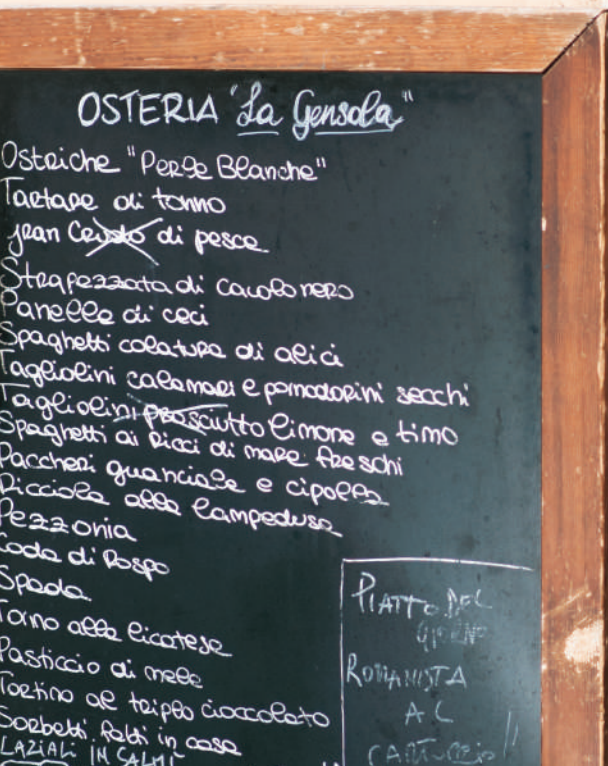 OSTERIA "La Gensola"
Ostriche "Perle Blanche"
Tartare di tonno
gran Crudo di pesce
Strapazzata di cavolo nero
Panelle di ceci
Spaghetti colatura di alici
Tagliolini calamari e pomodorini secchi
Tagliolini prosciutto limone e timo
Spaghetti ai Ricci di mare freschi
Paccheri guanciale e cipolla
Ricciola alla lampedusa
Pezzonia
Coda di Rospo
Spada
Tonno alla licatese
Pasticcio di mele
Tortino al triplo cioccolato
Sorbetti fatti in casa
LAZIALI IN SALMÌ
PIATTO DEL
GIORNO
ROMANISTA
AL
CARTOCCIO!!